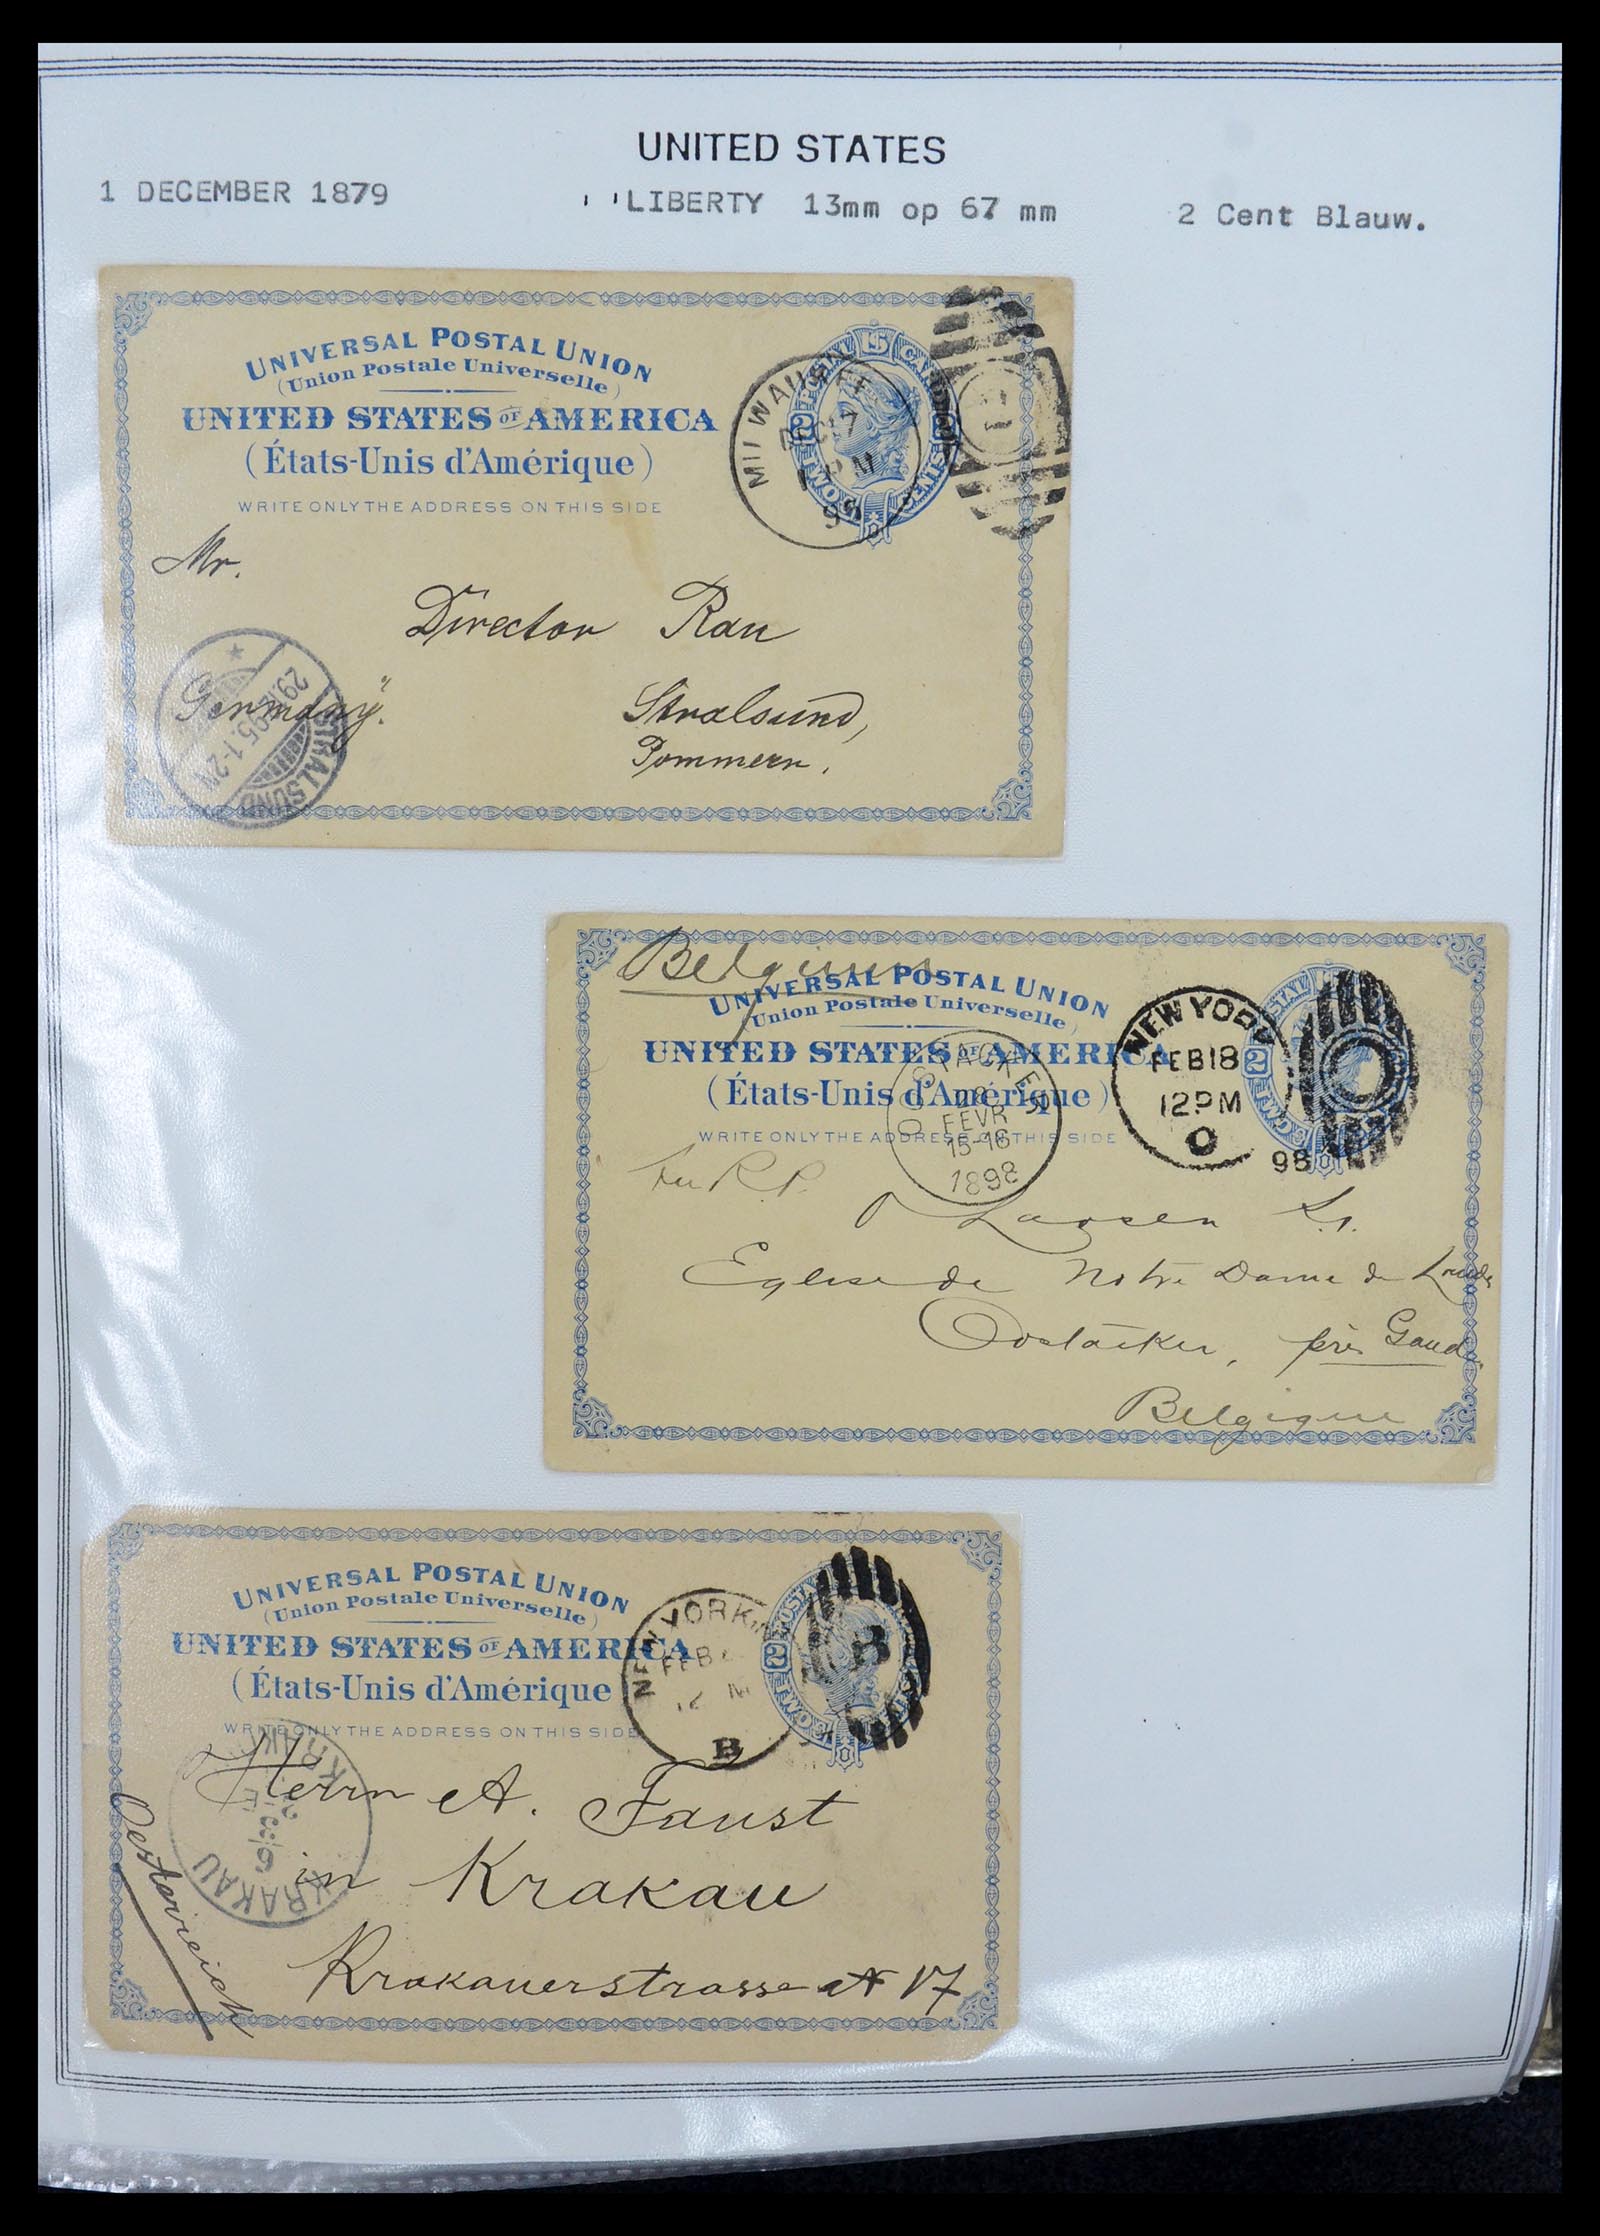 UNITED STATES
1 DECEMBER 1879 ''LIBERTY 13mm op 67 mm 2 Cent Blauw.
UNIVERSAL POSTAL UNION
(Union Postale Universelle)
UNITED STATES OF AMERICA
(États-Unis d'Amérique)
WRITE ONLY THE ADDRESS ON THIS SIDE
MILWAUKEE
7
PM
95
Mr.
Director Rau
Germany.
Stralsund,
Pommern.
STRALSUND
29.12.95.1-2N
Belgium
UNIVERSAL POSTAL UNION
(Union Postale Universelle)
UNITED STATES OF AMERICA
(États-Unis d'Amérique)
WRITE ONLY THE ADDRESS ON THIS SIDE
NEW YORK
FEB 18
12PM
O
98
OOSTACKER
28
FEVR
15-16
1898
R.P.
Eglise de Notre Dame de Lourdes
Oostacker, près Gand,
Belgique
UNIVERSAL POSTAL UNION
(Union Postale Universelle)
UNITED STATES OF AMERICA
(États-Unis d'Amérique
WRITE ONLY THE ADDRESS ON THIS SIDE
NEW YORK
FEB
12 M
B
B
KRAKAU
Herrn A. Faust
in Krakau
Krakauerstrasse N 17
Oesterreich